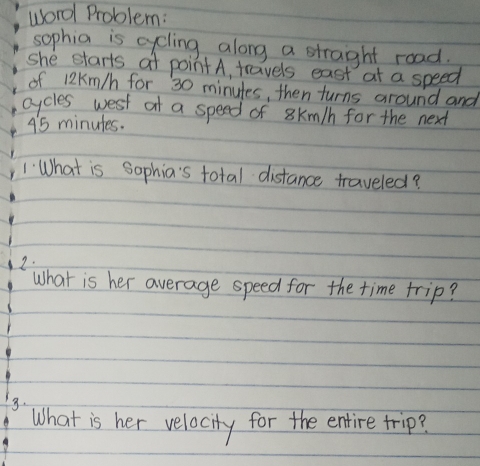 Word Problem:
sophia is cycling along a straight road.
She starts at point A, travels east at a speed
of 12km/h for 30 minutes, then turns around and
cycles west at a speed of 8km/h for the next
45 minutes.
1. What is Sophia's total distance traveled?
2.
What is her average speed for the time trip?
3.
What is her velocity for the entire trip?